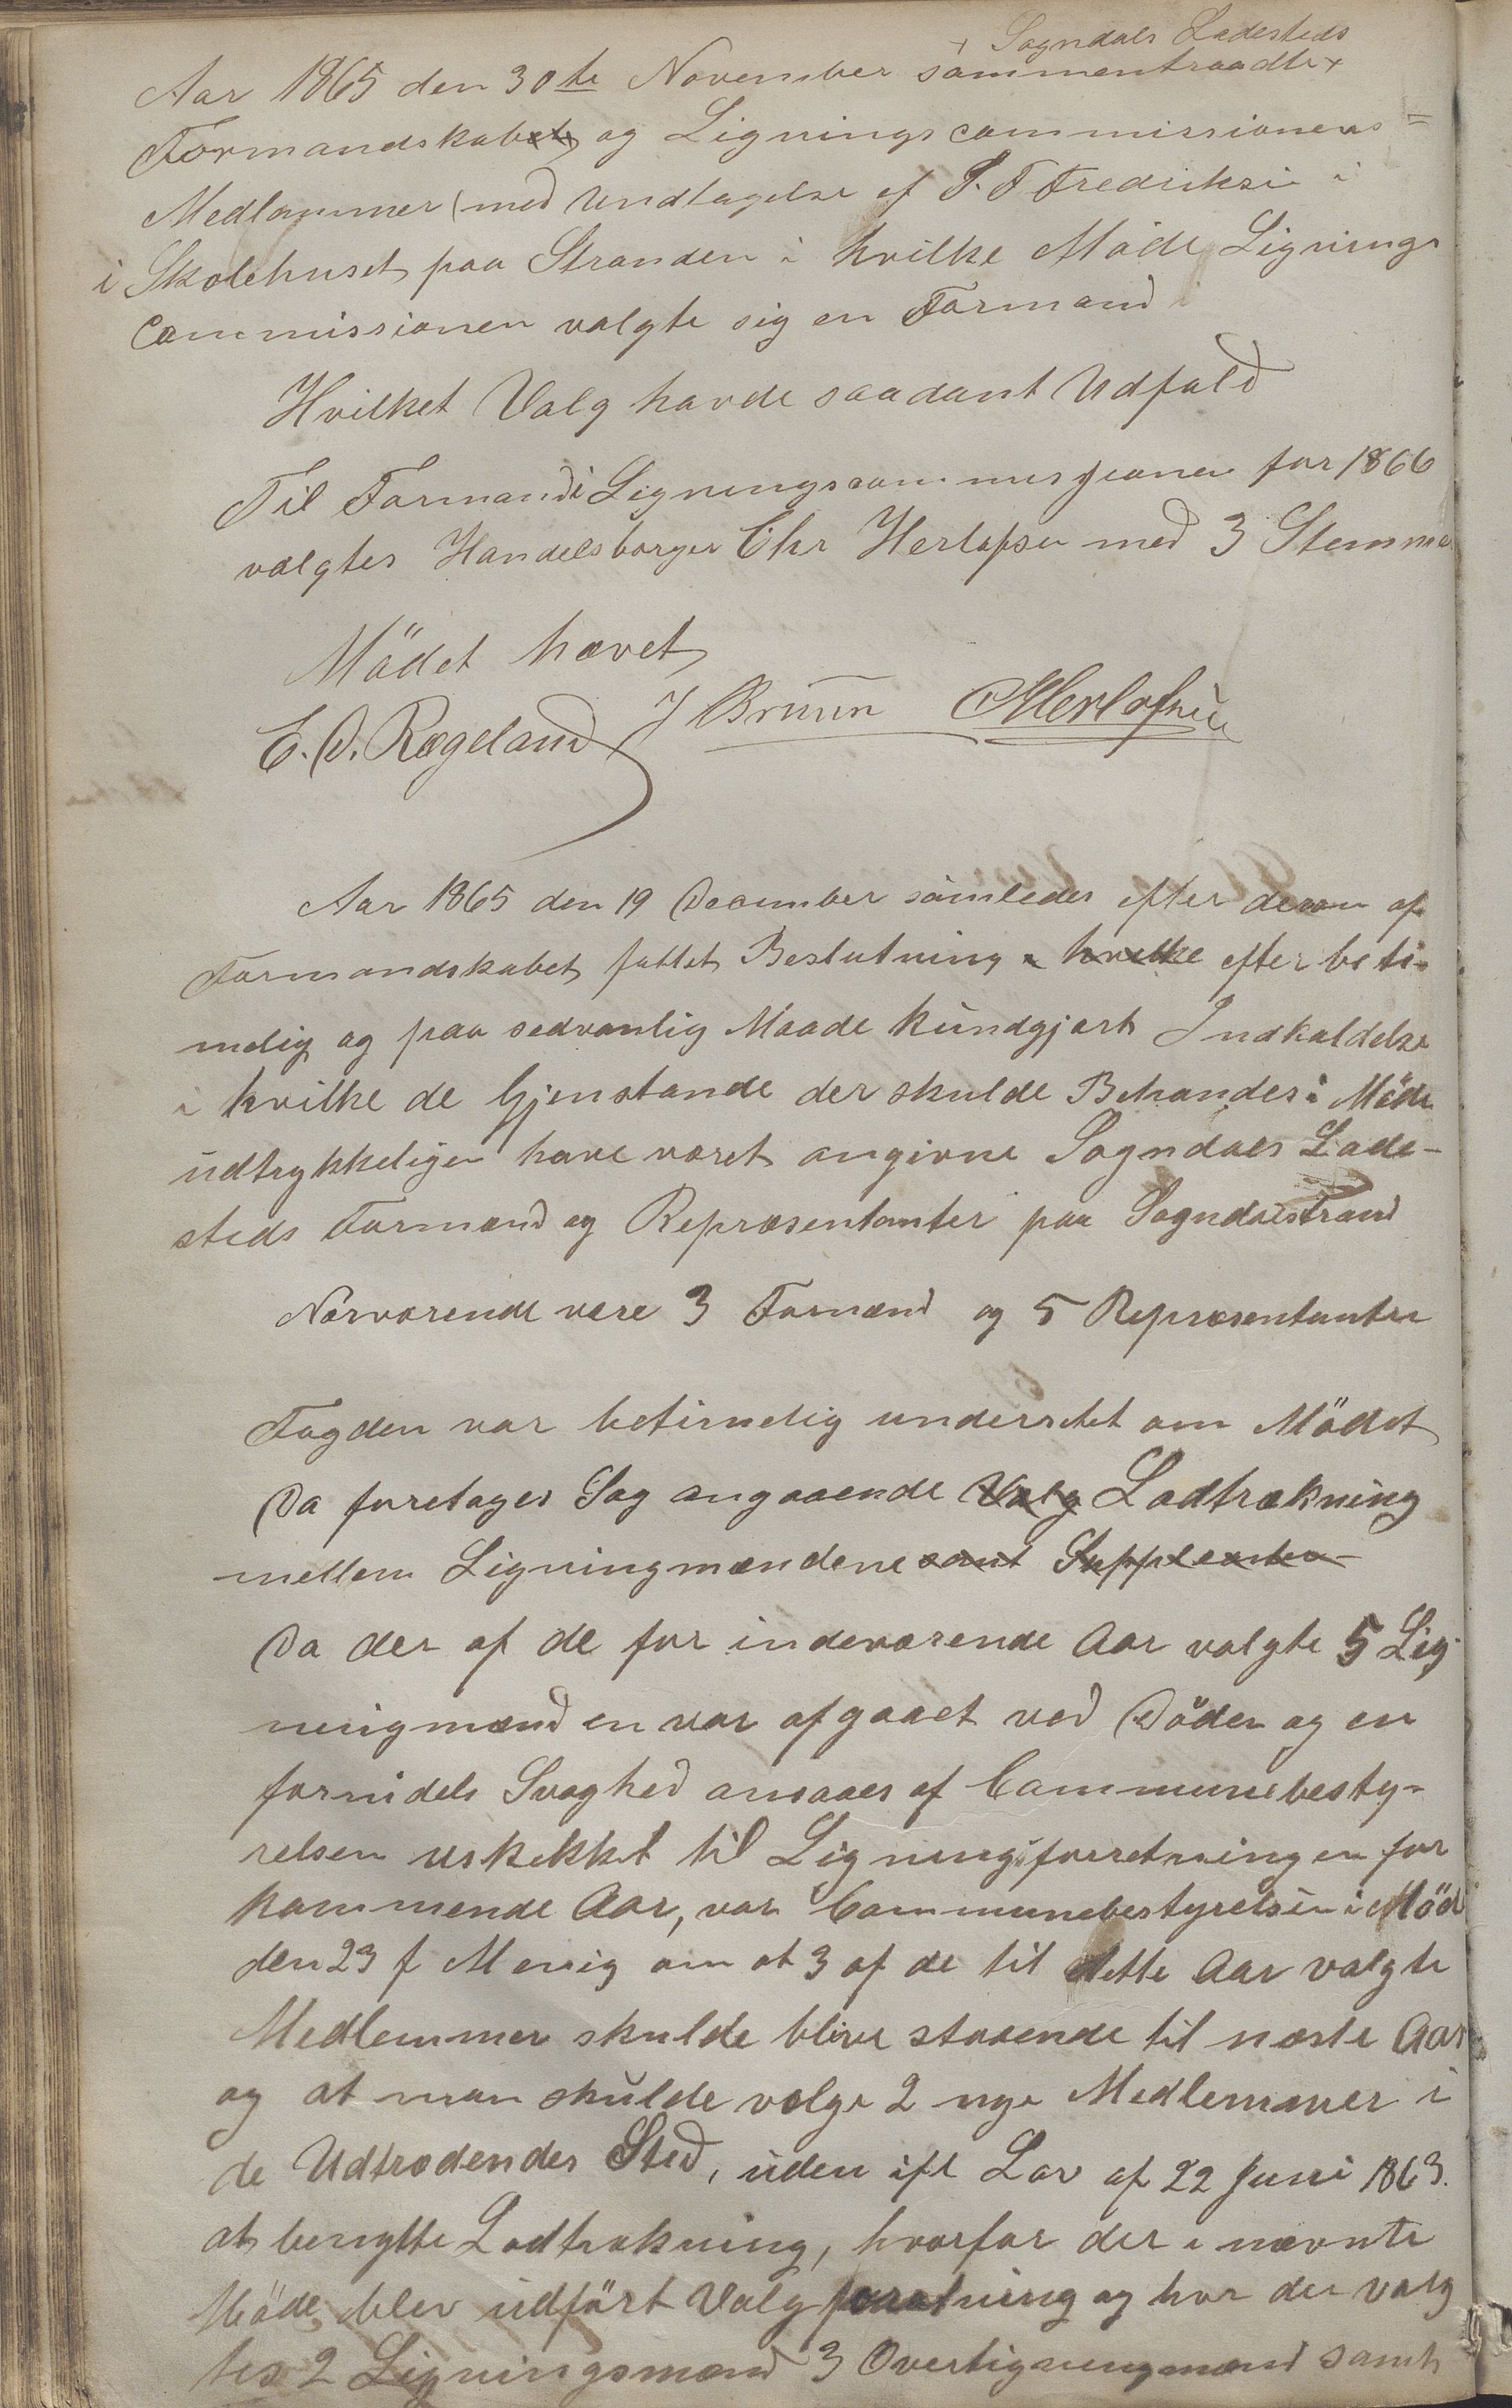 + Sogndals Ladesteds
Aar 1865 den 30te November sammentraadte +
Formandskabets og Ligningscommissionens =
Medlemmer (med Undtagelse af P. T Fredriksen i
i Skolehuset paa Stranden i hvilke Møde Lignings
Commissionen valgte sig en Formand
Hvilket Valg havde saadant Udfald
Til Formand i Ligningscommissionen for 1866
valgtes Handelsborger Chr Herlofsen med 3 Stemmer
Mödet hævet
E. O. Rægeland J Bruun CHerlofsen
Aar 1865 den 19 December samledes efter derom af
Formandskabet fattet Beslutning hvilke efter beti-
melig og paa sedvanlig Maade kundgjort Indkaldelse
i hvilke de Gjenstande der skulde Behandes i Möde
udtrykkeligen have været angivne Sogndals Lade-
steds Formænd og Repræsentanter paa Sogndalstrand
Nærværende vare 3 Formænd og 5 Repræsentanter
Fogden var betimelig underrettet om Mödet
Da foretages Sag angaaende Valg Lodtrækning
mellem Ligningmændene samt Supplenter
Da der af de for indeværende Aar valgte 5 Lig-
ningmænd en var afgaaet ved Döden og en
formidels Svaghed ansaaes af Communebesty-
relsen uskikket til Ligningsforretningen for
kommende Aar, var Communebestyrelsen i Möde
den 23 f M enig om at 3 af de til dette Aar valgte
Medlemmer skulde blive staaende til næste Aar
og at man skulde vælge 2 nye Medlemmer i
de Udtrædendes Sted, uden ifl Lov af 22 Juni 1863.
at benytte Lodtrækning, hvorfor der i nævnte
Möde blev udfört Valgforretning og hvor der valg
tes 2 Ligningsmænd 3 Overligningmænd samt